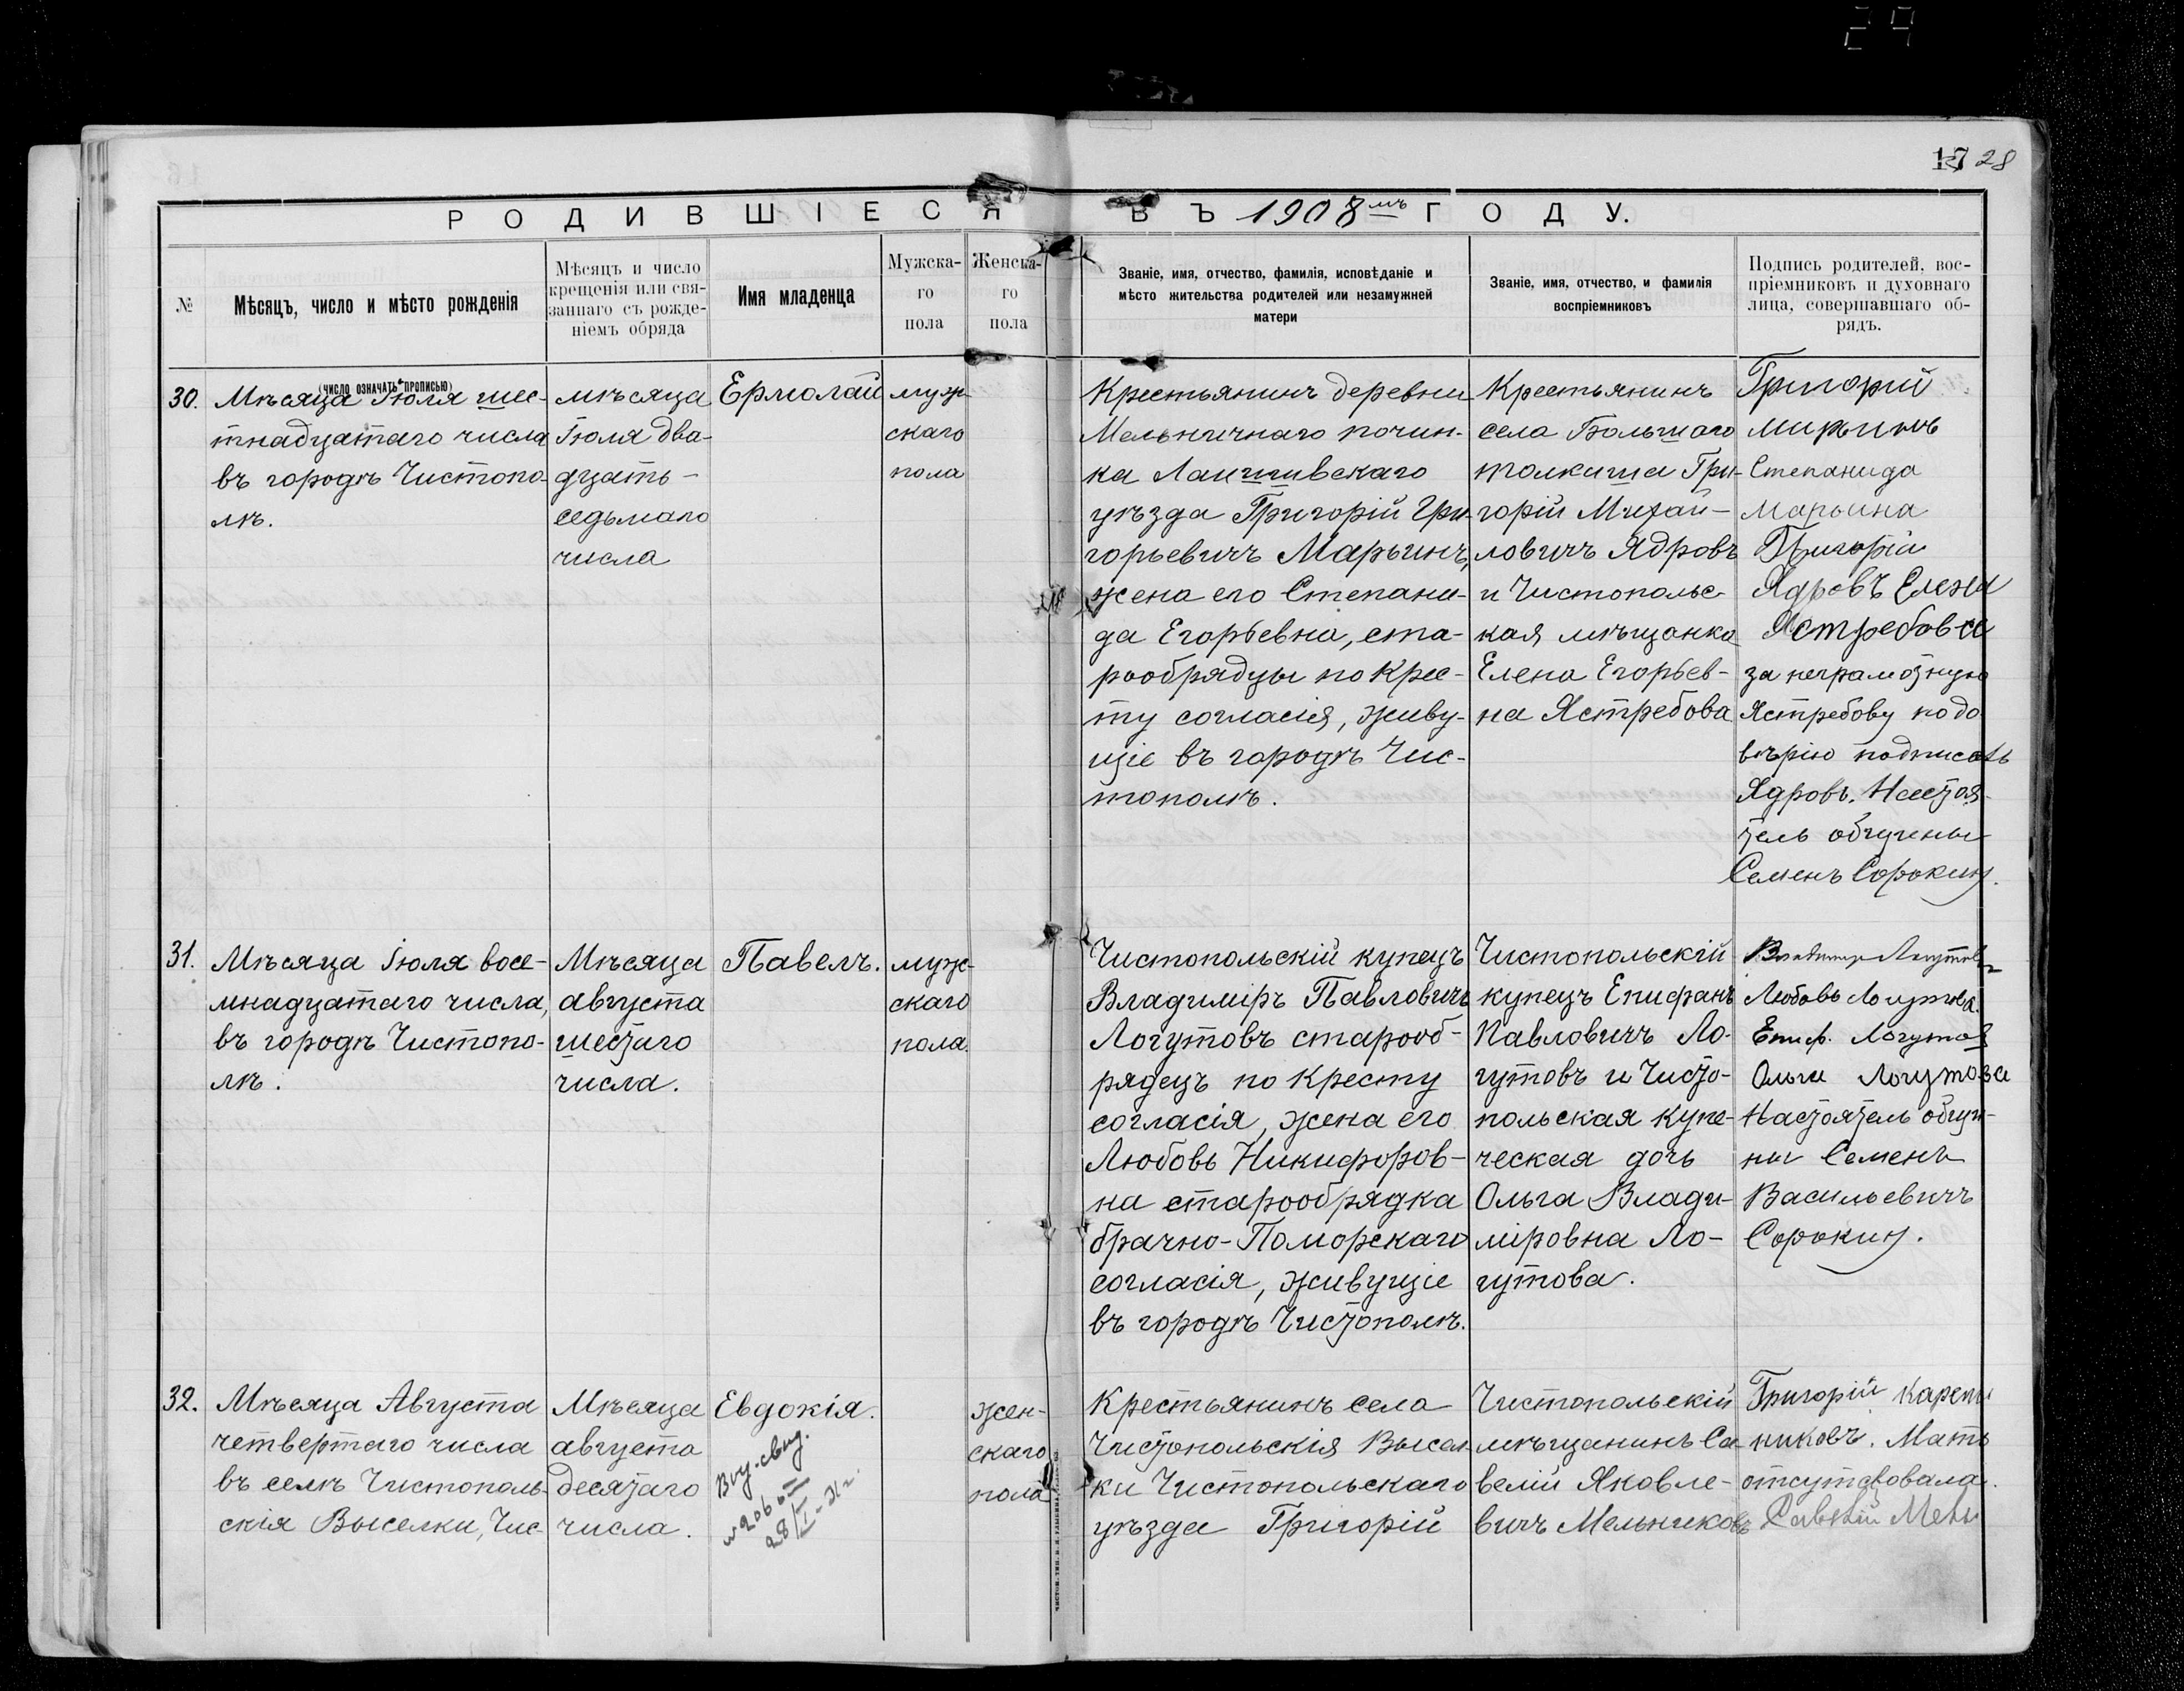 17 28
РОДИВШІЕСЯ ВЪ 1908мъ ГОДУ.
№
Мѣсяцъ, число и мѣсто рожденія
(число означать прописью)
Мѣсяцъ и число
крещенія или свя-
заннаго съ рожде-
ніемъ обряда
Имя младенца
Мужска-
го
пола
Женска-
го
пола
Званіе, имя, отчество, фамилія, исповѣданіе и
мѣсто жительства родителей или незамужней
матери
Званіе, имя, отчество, и фамилія
воспріемниковъ
Подпись родителей, вос-
пріемниковъ и духовнаго
лица, совершавшаго об-
рядъ.
30.
Мѣсяца Іюля шес-
тнадцатаго числа
въ городѣ Чистопо-
лѣ.
мѣсяца
Іюля два-
дцать-
седьмаго
числа
Ермолай
муж-
скаго
пола
Крестьянинъ деревни
Мельничнаго почин-
ка Лаишивскаго
уѣзда Григорій Гри-
горьевичъ Марьинъ,
жена его Степани-
да Егорьевна, ста-
рообрядцы по Крес-
ту согласія, живу-
щіе въ городѣ Чис-
тополѣ.
Крестьянинъ
села Большаго
толкиша Гри-
горій Михай-
ловичъ Ядровъ
и Чистопольс-
кая мѣщанка
Елена Егорьев-
на Ястребова
Григорій
Степанида
Марьина
Григорій
Ядровъ Елена
Ястребова
за неграмотную
Ястребову по до
вѣрію подписалъ
Ядровъ. Настоя-
тель общины
Семенъ Сорокин.
31.
Мѣсяца Іюля восе-
мнадцатаго числа,
въ городѣ Чистопо-
лѣ.
Мѣсяца
августа
шестаго
числа.
Павелъ.
муж-
скаго
пола.
Чистопольскій купецъ
Владиміръ Павловичъ
Логутовъ старооб-
рядецъ по Кресту
согласія, жена его
Любовь Никифоров-
на старообрядка
брачно-Поморскаго
согласія, живущіе
въ городѣ Чистополѣ.
Чистопольскій
купецъ Епифанъ
Павловичъ Ло-
гутовъ и Чисто-
польская купе-
ческая дочь
Ольга Влади-
міровна Ло-
гутова.
Владимир Логутов
Любовь Логутова.
Епиф. Логутов
Ольга Логутова
Настоятель общи-
ны Семенъ
Васильевичъ
Сорокин.
32.
Мѣсяца Августа
четвертаго числа
въ селѣ Чистополь-
скія Выселки, Чис-
Мѣсяца
августа
десятаго
числа.
Евдокія.
28/I-31г.
жен-
скаго
пола
Крестьянинъ села
Чистопольскія Высел
ки Чистопольскаго
уѣзда Григорій
Чистопольскій
мѣщанинъ Са-
велій Яковле-
вичъ Мельниковъ
Григорій Карепа
никовъ. Мать
отсутствовала.
Савелій Мель